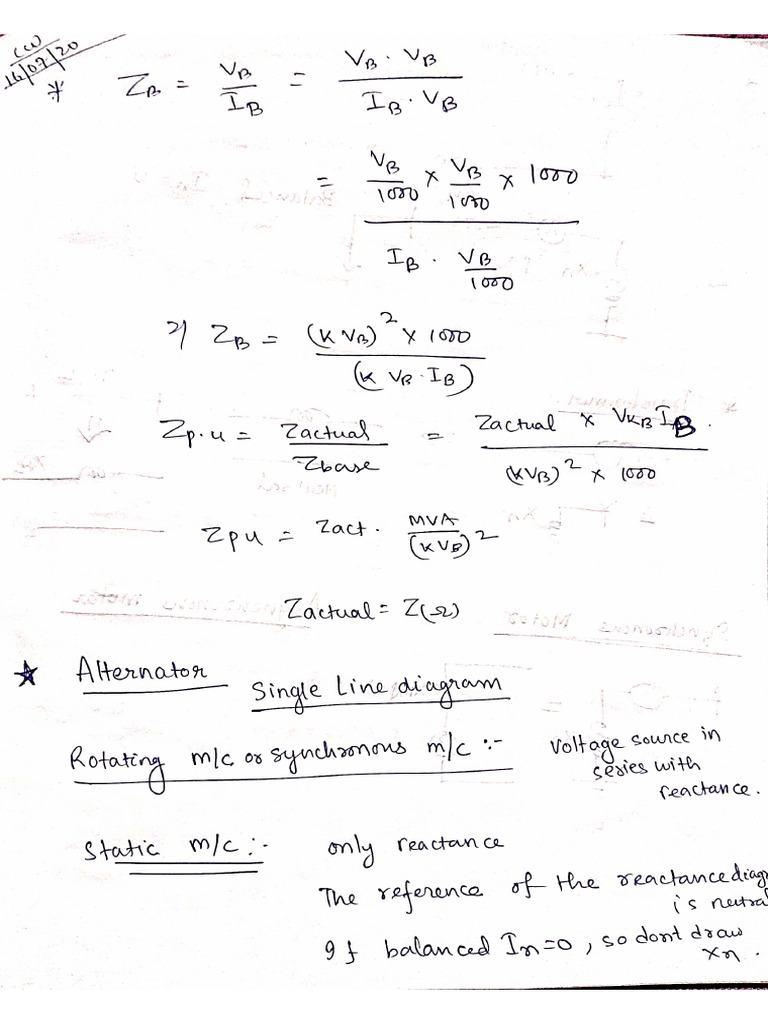 CW
16/07/20
* Z_B = V_B / I_B = V_B · V_B / I_B · V_B
= V_B/1000 × V_B/1000 × 1000 / I_B · V_B/1000
2) Z_B = (K V_B)^2 × 1000 / (K V_B · I_B)
Z p.u = Zactual / Zbase = Zactual × V K_B I_B. / (KV_B)^2 × 1000
Z p u = Zact. MVA / (KV_B)^2
Zactual = Z(Ω)
★ Alternator
Single Line diagram
Rotating m/c or synchronous m/c :- Voltage source in
series with
reactance.
Static m/c :- only reactance
The reference of the reactance diagr
is neutra
If balanced In=0, so dont draw
Xn.